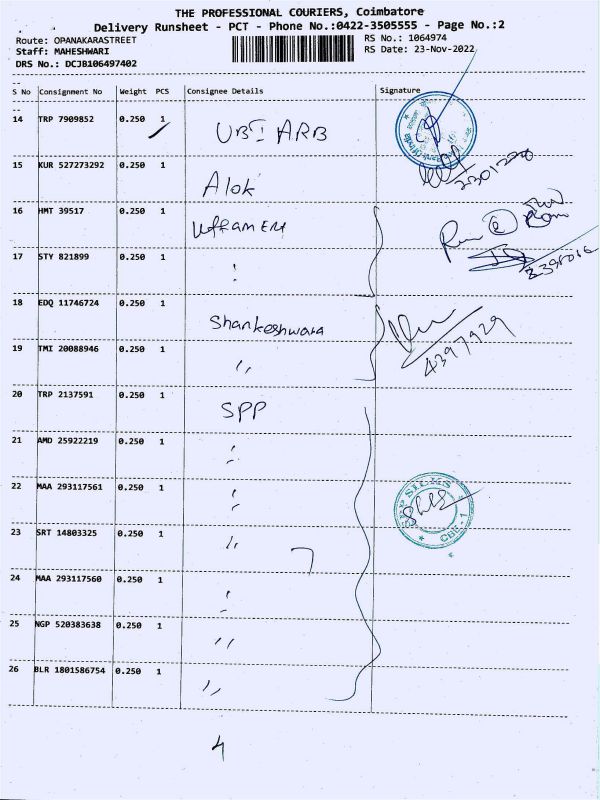 THE PROFESSIONAL COURIERS, Coimbatore
Delivery Runsheet - PCT - Phone No.:0422-3505555 - Page No.:2
Route: OPANAKARASTREET
Staff: MAHESHWARI
DRS No.: DCJB106497402
RS No.: 1064974
RS Date: 23-Nov-2022
S No Consignment No Weight PCS Consignee Details Signature
14 TRP 7909852 0.250 1 UBI ARB
15 KUR 527273292 0.250 1 Alok
16 HMT 39517 0.250 1
17 STY 821899 0.250 1 "
18 EDQ 11746724 0.250 1 Shankeshwara
19 TMI 20088946 0.250 1 "
4397929
20 TRP 2137591 0.250 1 SPP
21 AMD 25922219 0.250 1 "
22 MAA 293117561 0.250 1 "
23 SRT 14803325 0.250 1 " 7
24 MAA 293117560 0.250 1 "
25 NGP 520383638 0.250 1 "
26 BLR 1801586754 0.250 1 "
4